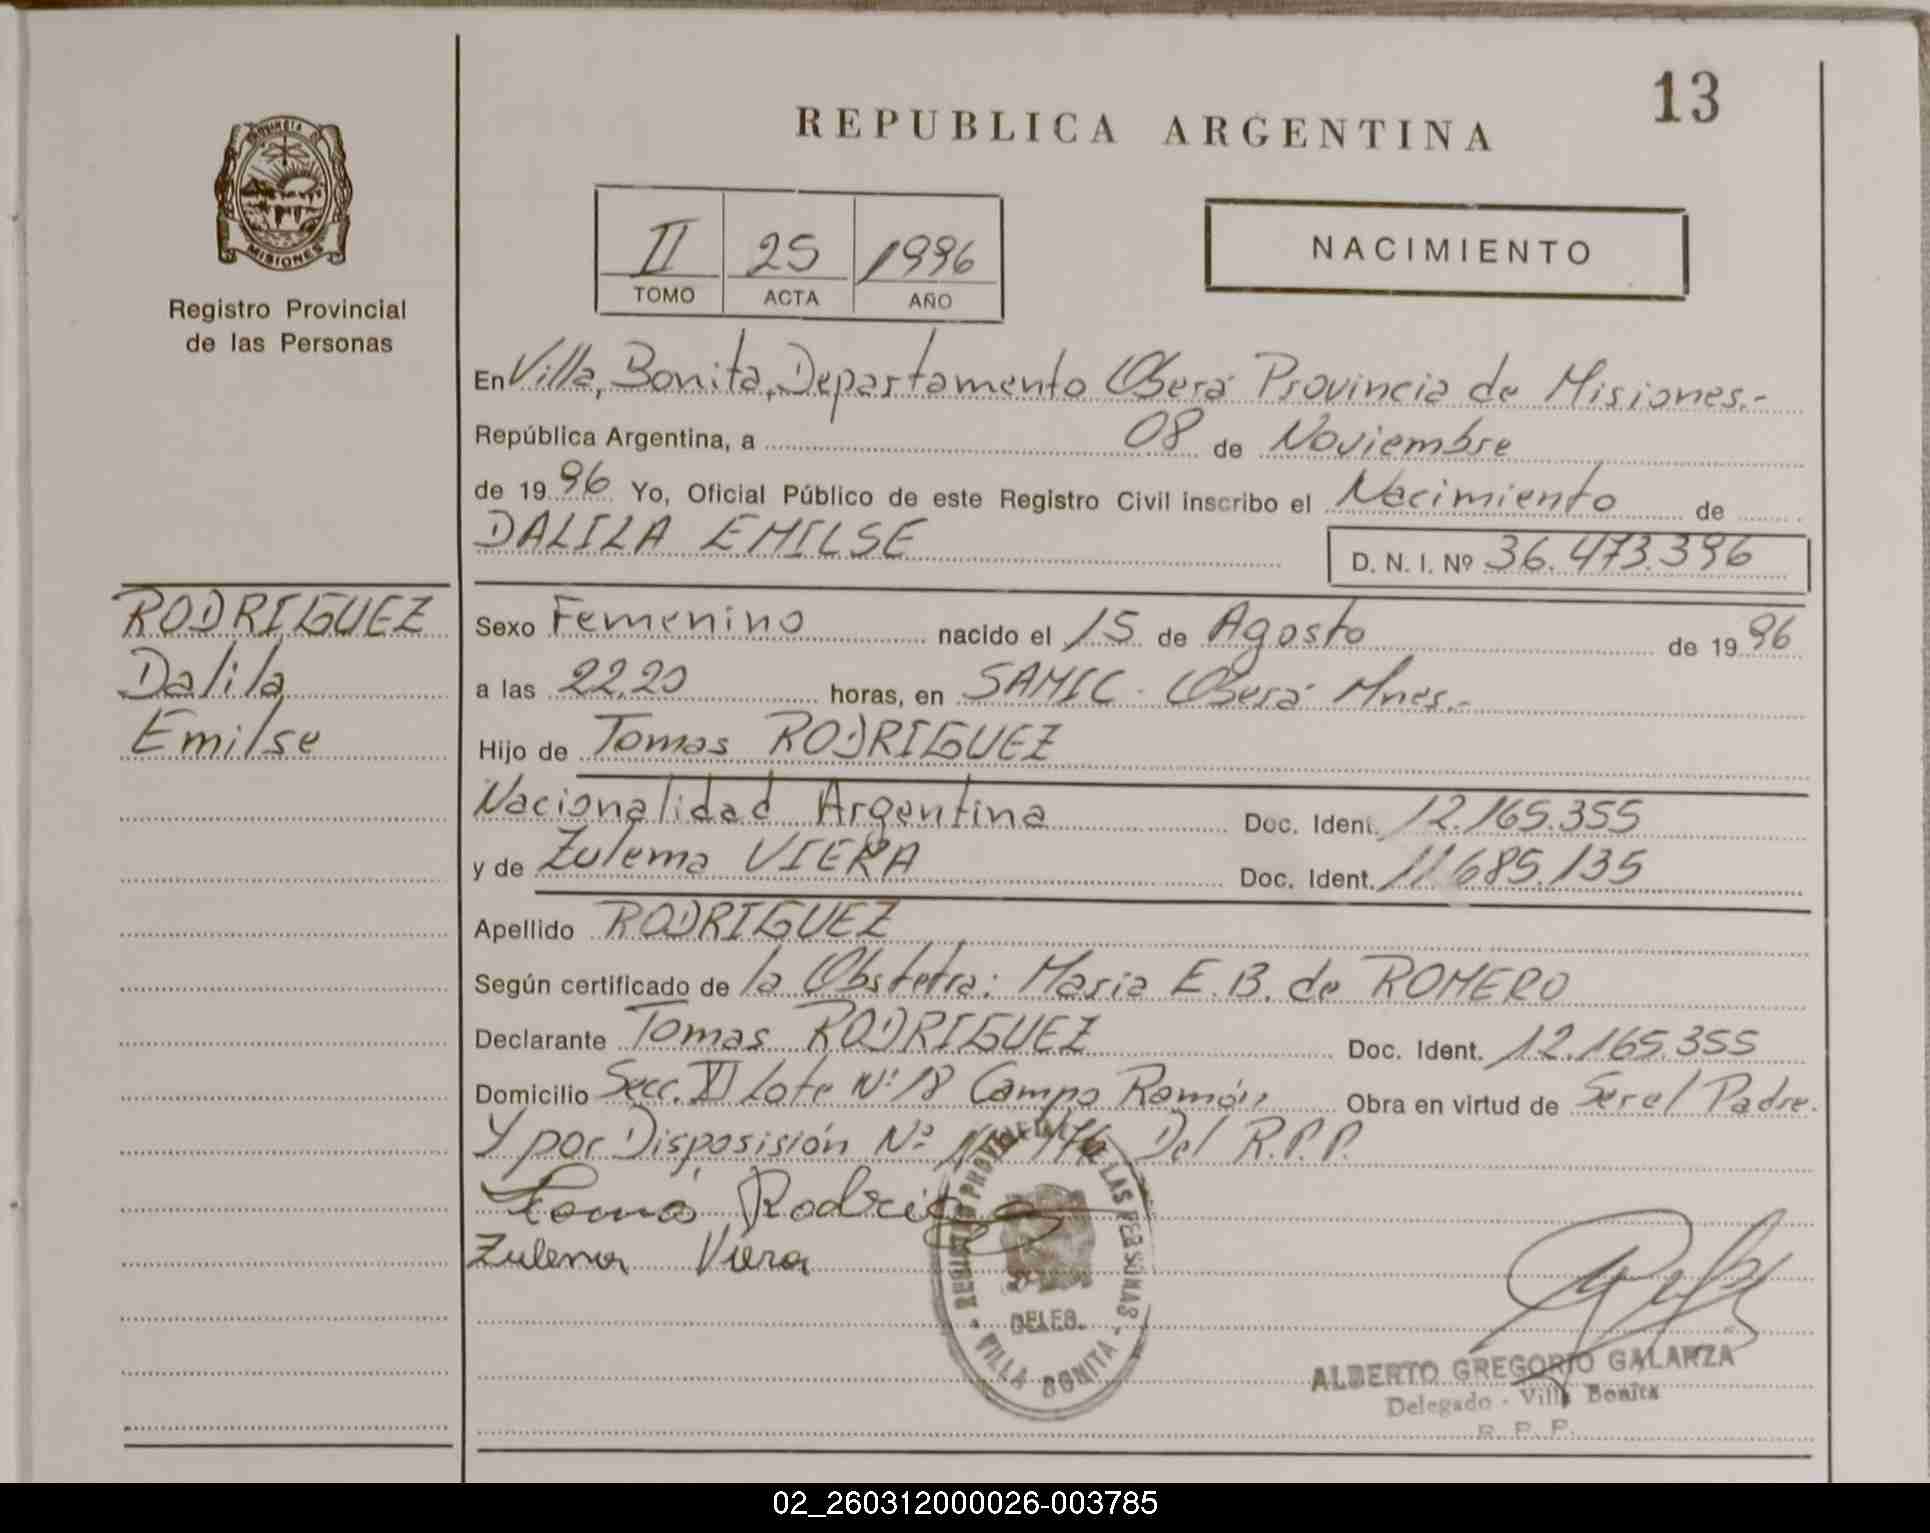 13
REPUBLICA ARGENTINA
PROVINCIA DE
MISIONES
Registro Provincial
de las Personas
II 25 1996
TOMO ACTA AÑO
NACIMIENTO
En Villa, Bonita, Departamento Oberá Provincia de Misiones.-
República Argentina, a 08 de Noviembre
de 1996 Yo, Oficial Público de este Registro Civil inscribo el Nacimiento de
DALILA EMILSE
D. N. I. Nº 36.473.396
RODRIGUEZ
Dalila
Emilse
Sexo Femenino nacido el 15 de Agosto de 1996
a las 22,20 horas, en SAMIC - Oberá Mnes.-
Hijo de Tomas RODRIGUEZ
Nacionalidad Argentina Doc. Ident. 12.165.355
y de Zulema VIERA Doc. Ident. 11.685.135
Apellido RODRIGUEZ
Según certificado de la Obstetra: Maria E.B. de ROMERO
Declarante Tomas RODRIGUEZ Doc. Ident. 12.165.355
Domicilio Secc. XI Lote Nº 18 Campo Ramón Obra en virtud de Ser el Padre.
Y por Disposisión Nº Del R.P.P.
Zulema Viera
LAS PERSONAS
DELEG.
VILLA BONITA
ALBERTO GREGORIO GALARZA
Delegado - Villa Bonita
R. P. P.
02_260312000026-003785